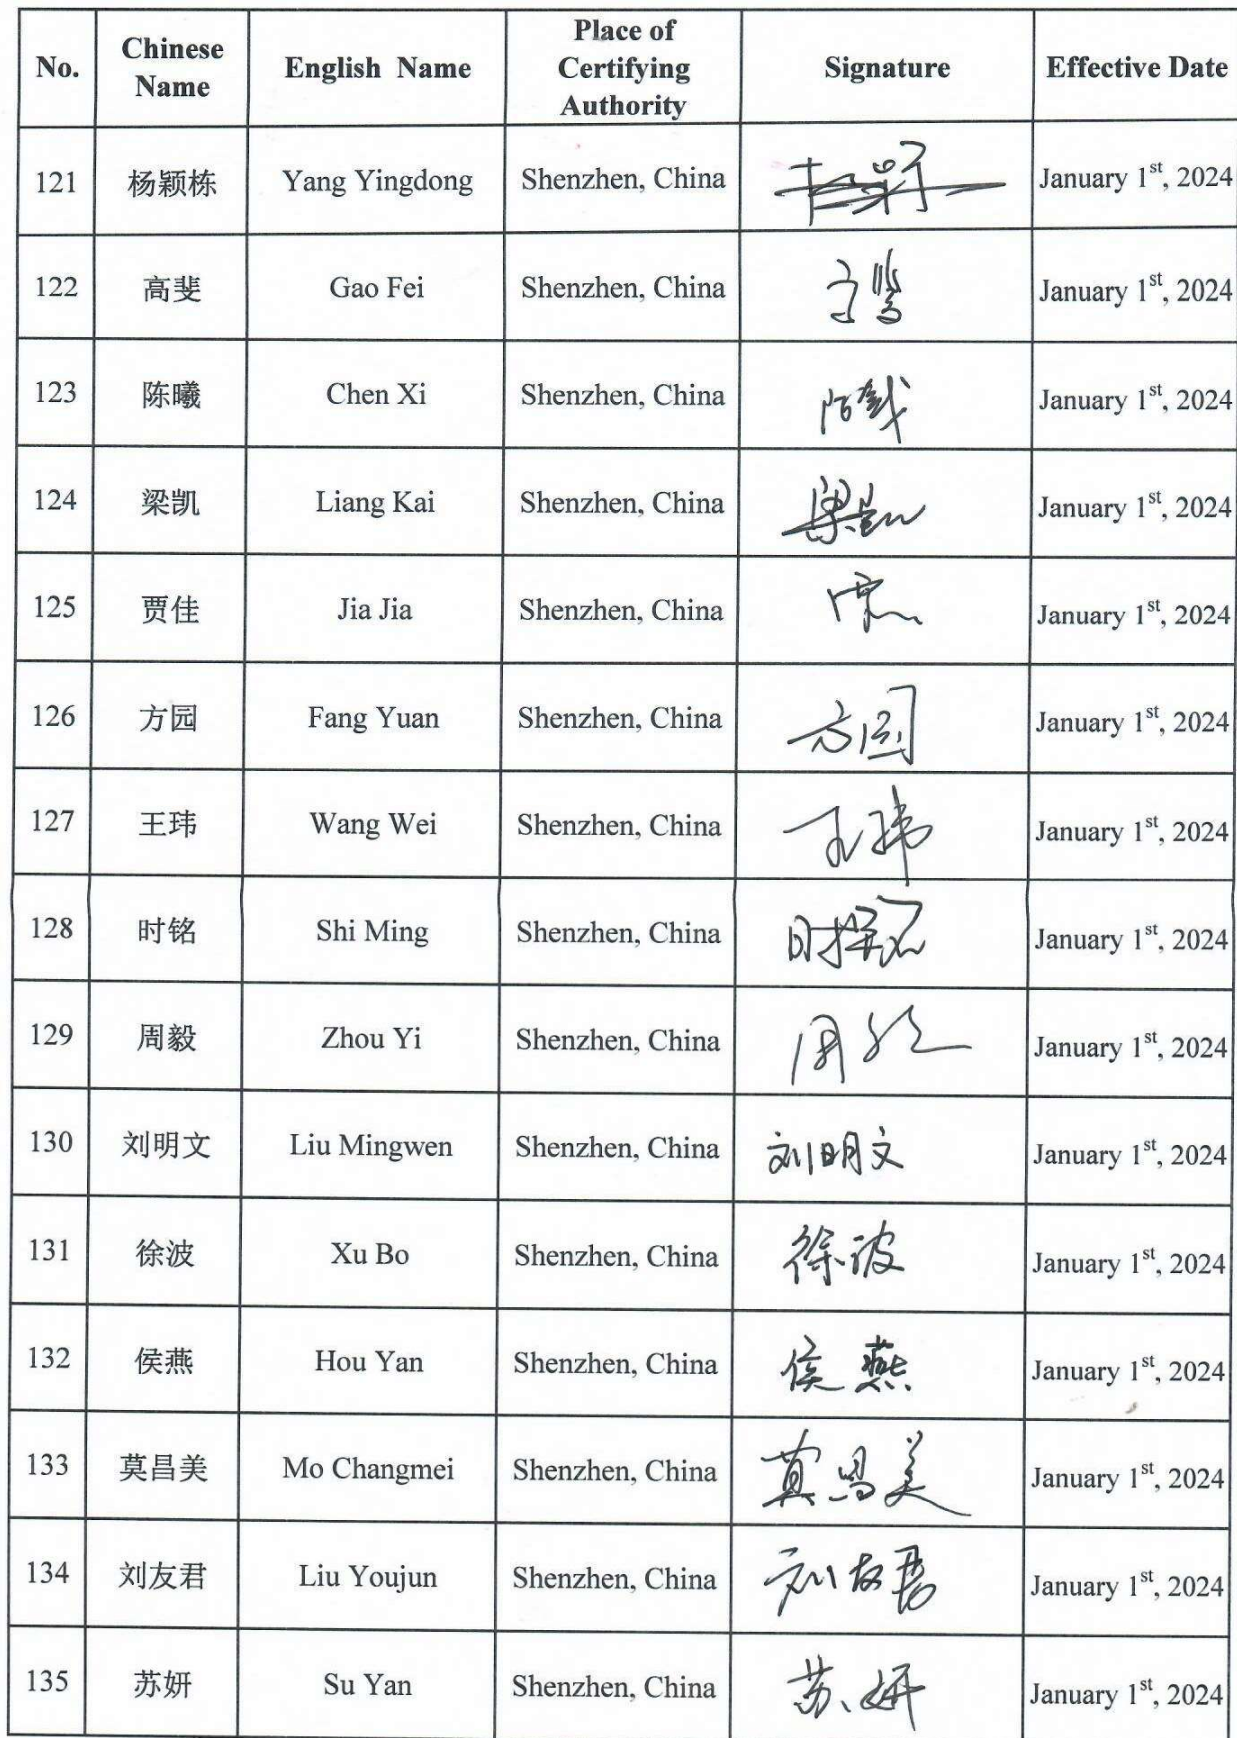 No. Chinese Name English Name Place of Certifying Authority Signature Effective Date
121 杨颖栋 Yang Yingdong Shenzhen, China January 1st, 2024
122 高斐 Gao Fei Shenzhen, China January 1st, 2024
123 陈曦 Chen Xi Shenzhen, China January 1st, 2024
124 梁凯 Liang Kai Shenzhen, China 梁凯 January 1st, 2024
125 贾佳 Jia Jia Shenzhen, China January 1st, 2024
126 方园 Fang Yuan Shenzhen, China 方园 January 1st, 2024
127 王玮 Wang Wei Shenzhen, China 王玮 January 1st, 2024
128 时铭 Shi Ming Shenzhen, China 时铭 January 1st, 2024
129 周毅 Zhou Yi Shenzhen, China 周毅 January 1st, 2024
130 刘明文 Liu Mingwen Shenzhen, China 刘明文 January 1st, 2024
131 徐波 Xu Bo Shenzhen, China 徐波 January 1st, 2024
132 侯燕 Hou Yan Shenzhen, China 侯燕 January 1st, 2024
133 莫昌美 Mo Changmei Shenzhen, China 莫昌美 January 1st, 2024
134 刘友君 Liu Youjun Shenzhen, China 刘友君 January 1st, 2024
135 苏妍 Su Yan Shenzhen, China 苏妍 January 1st, 2024